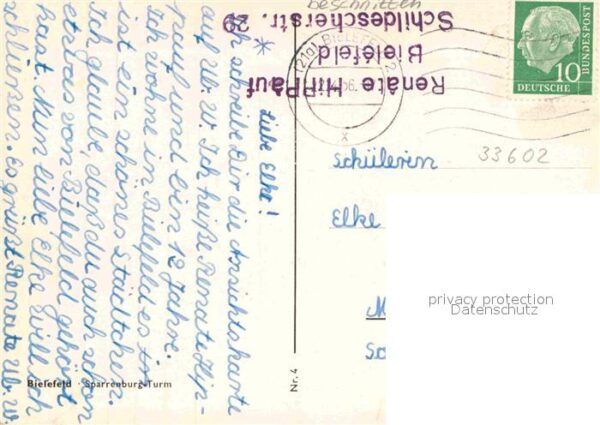 beschnitten
Renate HIPPauf
Bielefeld
Schildescherstr. 29
(21a) BIELEFELD
56
x
DEUTSCHE
BUNDESPOST
10
33602
Schülerin
Elke
M
Sc
privacy protection
Datenschutz
Nr. 4
Bielefeld · Sparrenburg-Turm
Liebe Elke!
Ich schreibe Dir die Ansichtskarte
auf W. W. Ich heiße Renate Hip-
pauf und bin 12 Jahre.
Ich wohne in Bielefeld es ist
ist ein schönes Städtchen.
Ich glaube, daß du auch schon
etwas von Bielefeld gehört
hast. Nun liebe Elke will ich
schließen. Es grüßt Renate W. W.